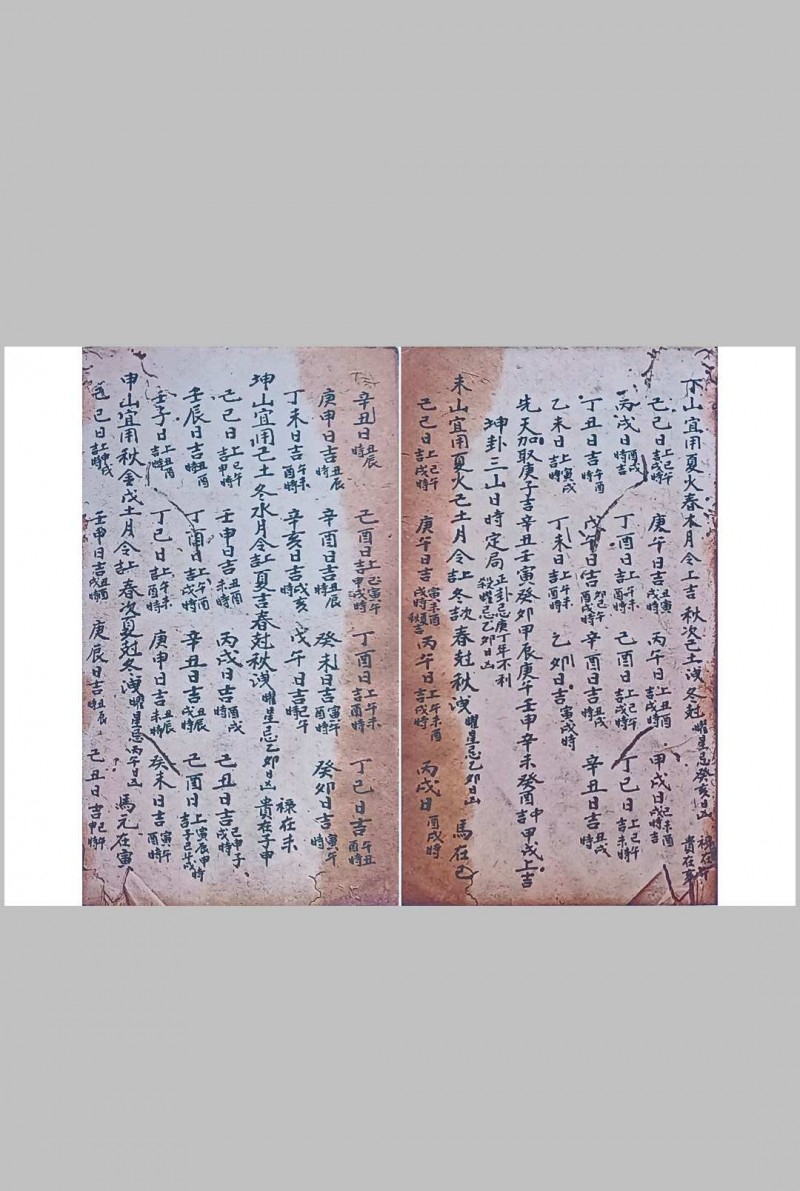 丁山宜用夏火春木月令上吉 秋次己土洩 冬尅 曜星忌癸亥日凶 祿在午 貴在亥
己巳日上巳午吉戌時 庚午日吉丑寅戌時 丙午日上丑酉吉戌時 甲戌日
丙戌日酉戌時吉 丁酉日上午未吉酉時 己酉日上巳午吉戌時 丁巳日上巳午吉未時
丁丑日吉午酉時 戊午日吉卯巳午酉戌時 辛酉日吉丑戌時 辛丑日吉丑戌時
乙未日上寅戌吉時 丁未日上午未吉酉時 乙卯日吉寅戌時
先天加取庚子吉辛丑壬寅癸卯甲辰庚午壬申辛未癸酉中吉甲戌上吉
坤卦三山日時定局 正卦忌庚丁年不利 殺曜忌乙卯日凶
未山宜用夏火己土月令吉上冬吉次春尅秋洩 曜星忌乙卯日凶 馬在巳
己巳日上巳午吉戌時 庚午日吉寅未酉戌時 丙午日上午未酉吉戌時 丙戌日酉戌時
辛丑日丑辰時 己酉日上巳寅午吉申戌時 丁酉日上午未吉酉時 丁巳日吉午丑酉時
庚申日吉丑辰時 辛酉日吉丑辰時 癸未日吉寅午酉時 癸卯日吉寅午時
丁未日吉午未酉時 辛亥日吉戌亥時 戊午日吉
坤山宜用己土冬水月令吉上夏吉春尅秋洩 曜星忌乙卯日凶 祿在未 貴在子申
己巳日上巳午吉申時 壬申日吉丑酉未時 丙戌日吉酉戌時 己丑日吉巳申子戌時
壬辰日吉丑酉時 丁酉日上午酉吉戌時 辛丑日吉丑辰戌時 己酉日上寅辰申時吉子巳午戌
壬子日上申酉吉時 丁巳日上午未吉申酉時 庚申日吉丑辰未時 癸未日吉寅午酉時
申山宜用秋金戊土月令吉上春次夏尅冬洩 曜星忌丙午日凶 馬元在寅
己巳日上申戌吉時 壬申日吉丑酉戌時 庚辰日吉丑辰時 己丑日吉申巳午時